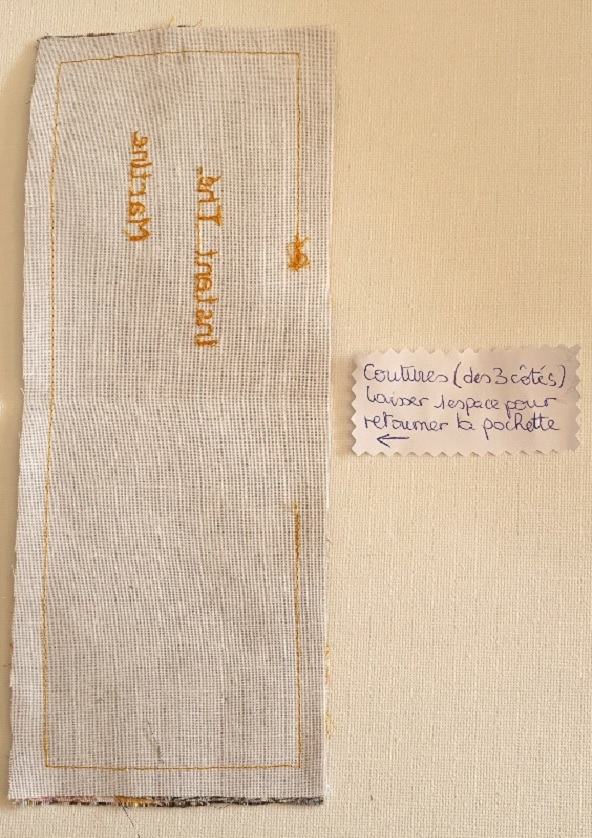 Instant Thé..
Martine
Coutures (des 3 côtés)
Laisser 1 espace pour
retourner la pochette